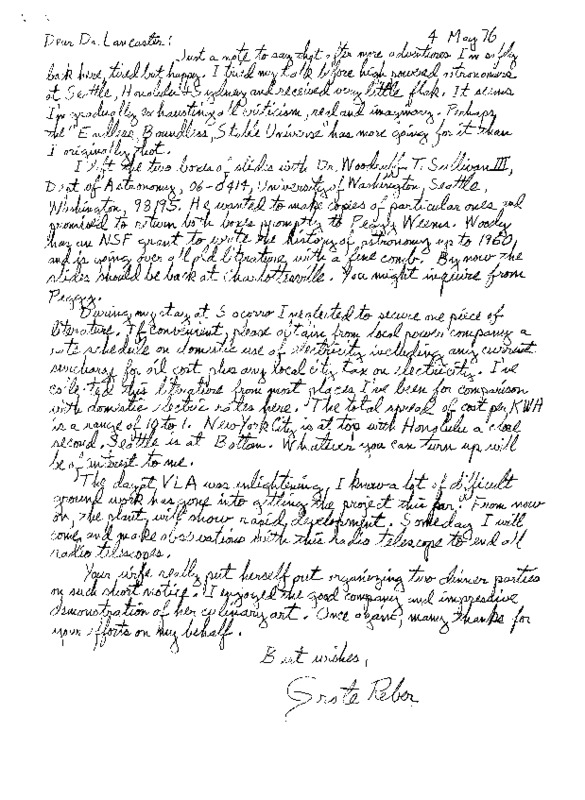 4 May 76
Dear Dr. Lancaster:
Just a note to say that after more adventures I'm safely
back here, tired but happy. I tried my talk before high powered astronomers
at Seattle, Honolulu & Sydney and received very little flak. It seems
I'm gradually exhausting all criticism, real and imaginary. Perhaps
the "Endless, Boundless, Stable Universe has more going for it than
I originally thot.
I left the two boxes of slides with Dr. Woodruff T. Sullivan III,
Dept. of Astronomy, 06-0414, University of Washington, Seattle,
Washington, 98195. He wanted to make copies of particular ones and
promised to return both boxes promptly to Peggy Weems. Woody
has an NSF grant to write the history of astronomy up to 1960
and is going over all old literature with a fine comb. By now the
slides should be back at Charlottesville. You might inquire from
Peggy.
During my stay at Socorro I neglected to secure one piece of
literature. If convenient, please obtain from local power company a
rate schedule on domestic use of electricity including any current
surcharge for oil cost plus any local city tax on electricity. I've
collected this literature from most places I've been for comparison
with domestic electric rates here. The total spread of cost per KWH
is a range of 19 to 1. New York City is at top with Honolulu a close
second. Seattle is at Bottom. Whatever you can turn up will
be of interest to me.
The day at VLA was enlightening. I know a lot of difficult
ground work has gone into getting the project this far. From now
on, the plant will show rapid development. Someday I will
come and make observations with this radio telescope to end all
radio telescopes.
Your wife really put herself out organizing two dinner parties
on such short notice. I enjoyed the good company and impressive
demonstration of her culinary art. Once again, many thanks for
your efforts on my behalf.
Best wishes,
Grote Reber